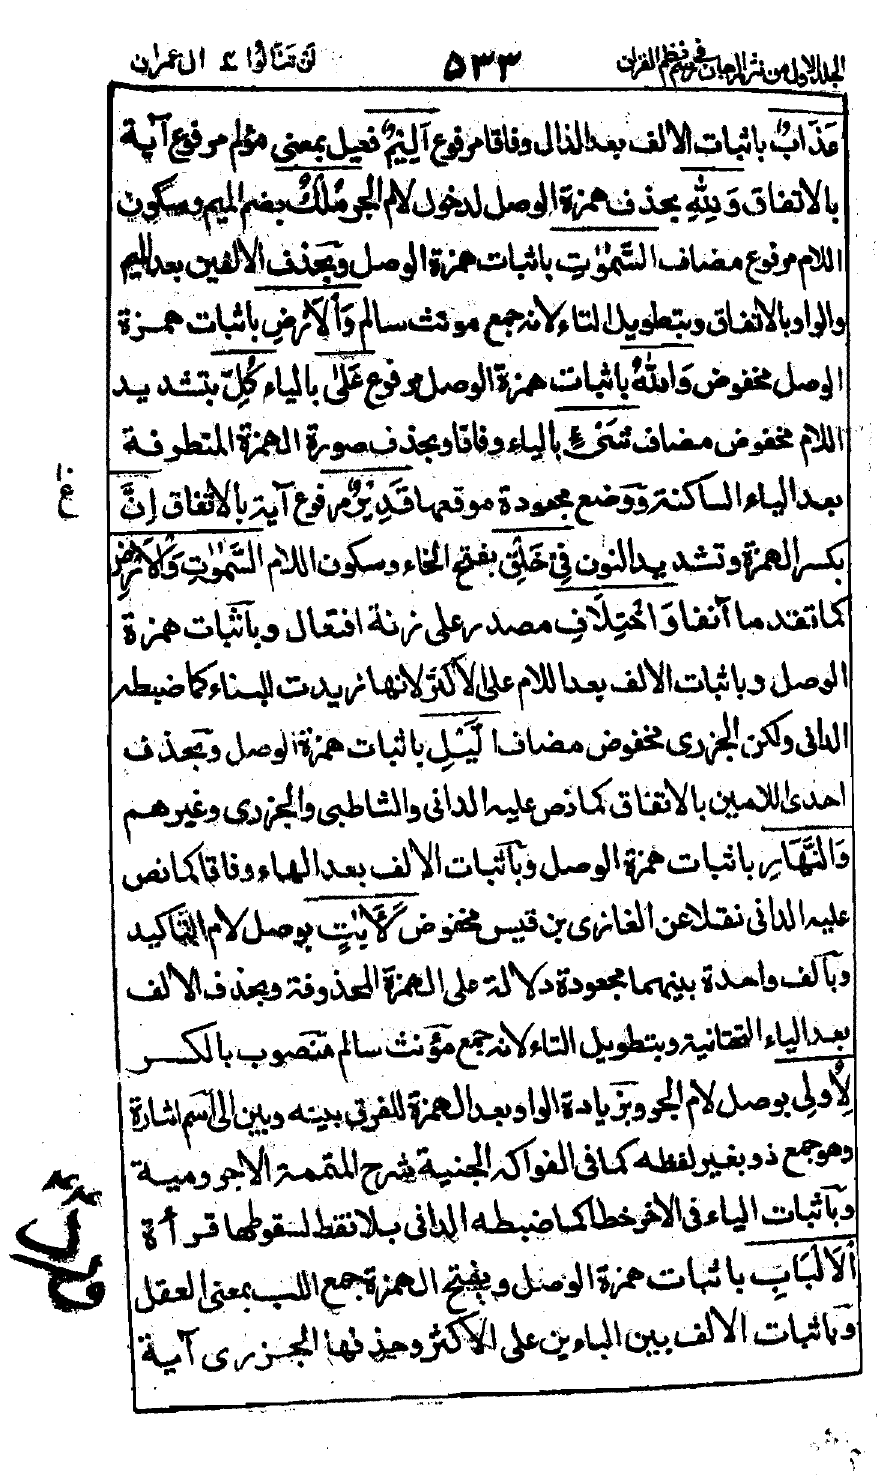 الجلد الاول من نثر المرجان في رسم نظم القران ۵۳۳ لن تنالوا ٤ ال عمران
عَذَابٌ باثبات الالف بعد الذال وفاقا مرفوع اَلِيْمٌ فعيل بمعنى مؤلم مرفوع آية
بالاتفاق وَلِلّٰهِ بحذف همزة الوصل لدخول لام الجر مُلْكُ بضم الميم وسكون
اللام مرفوع مضاف السَّمٰوٰتِ باثبات همزة الوصل وبحذف الالفين بعد الميم
والواو بالاتفاق وبتطويل التاء لانه جمع مونث سالم وَالْاَرْضِ باثبات همزة
الوصل مخفوض وَاللّٰهُ باثبات همزة الوصل مرفوع عَلٰى بالياء كُلِّ بتشديد
اللام مخفوض مضاف شَىْءٍ بالياء وفاقا وبحذف صورة الهمزة المتطرفة
بعد الياء الساكنة ووضع مجعودة موقعها قَدِيْرٌ مرفوع آية بالاتفاق اِنَّ
بكسر الهمزة وتشديد النون فِىْ خَلْقِ بفتح الخاء وسكون اللام السَّمٰوٰتِ وَالْاَرْضِ
كما تقدما آنفا وَاخْتِلَافِ مصدر على زنة افتعال وباثبات همزة
الوصل وباثبات الالف بعد اللام على الاكثر لانها زيدت للبناء كما ضبطه
الدانى ولكن الجزرى مخفوض مضاف الَّيْلِ باثبات همزة الوصل وبحذف
احدى اللامين بالاتفاق كما نص عليه الدانى والشاطبى والجزرى وغيرهم
وَالنَّهَارِ باثبات همزة الوصل وباثبات الالف بعد الهاء وفاقا كما نص
عليه الدانى نقلا عن الغازى بن قيس مخفوض لَاٰيٰتٍ بوصل لام التاكيد
وبالف واحدة بينهما مجعودة دلالة على الهمزة المحذوفة وبحذف الالف
بعد الياء التحتانية وبتطويل التاء لانه جمع مؤنث سالم منصوب بالكسر
لِاُولِى بوصل لام الجر وبزيادة الواو بعد الهمزة للفرق بينه وبين الى اسم اشارة
وهو جمع ذو بغير لفظه كما فى الفواكه الجنية شرح المتممة الاجرومية
وباثبات الياء فى الاخر خطا كما ضبطه الدانى بلا نقط لسقوطها قرأة
الْاَلْبَابِ باثبات همزة الوصل وبفتح الهمزة جمع اللب بمعنى العقل
وباثبات الالف بين الباءين على الاكثر وحذفها الجزرى آية